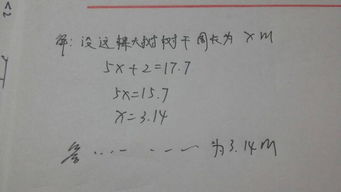 解：设这棵大树树干周长为 x m
5x+2=17.7
5x=15.7
x=3.14
答 …… …… 为3.14m